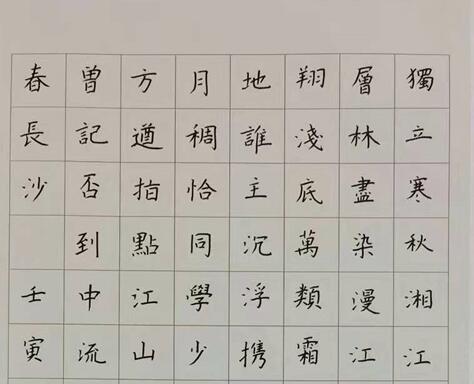 獨立寒秋湘江
層林盡染漫江
翔淺底萬類霜
地誰主沉浮携
月稠恰同學少
方遒指點江山
曾記否到中流
春長沙 壬寅